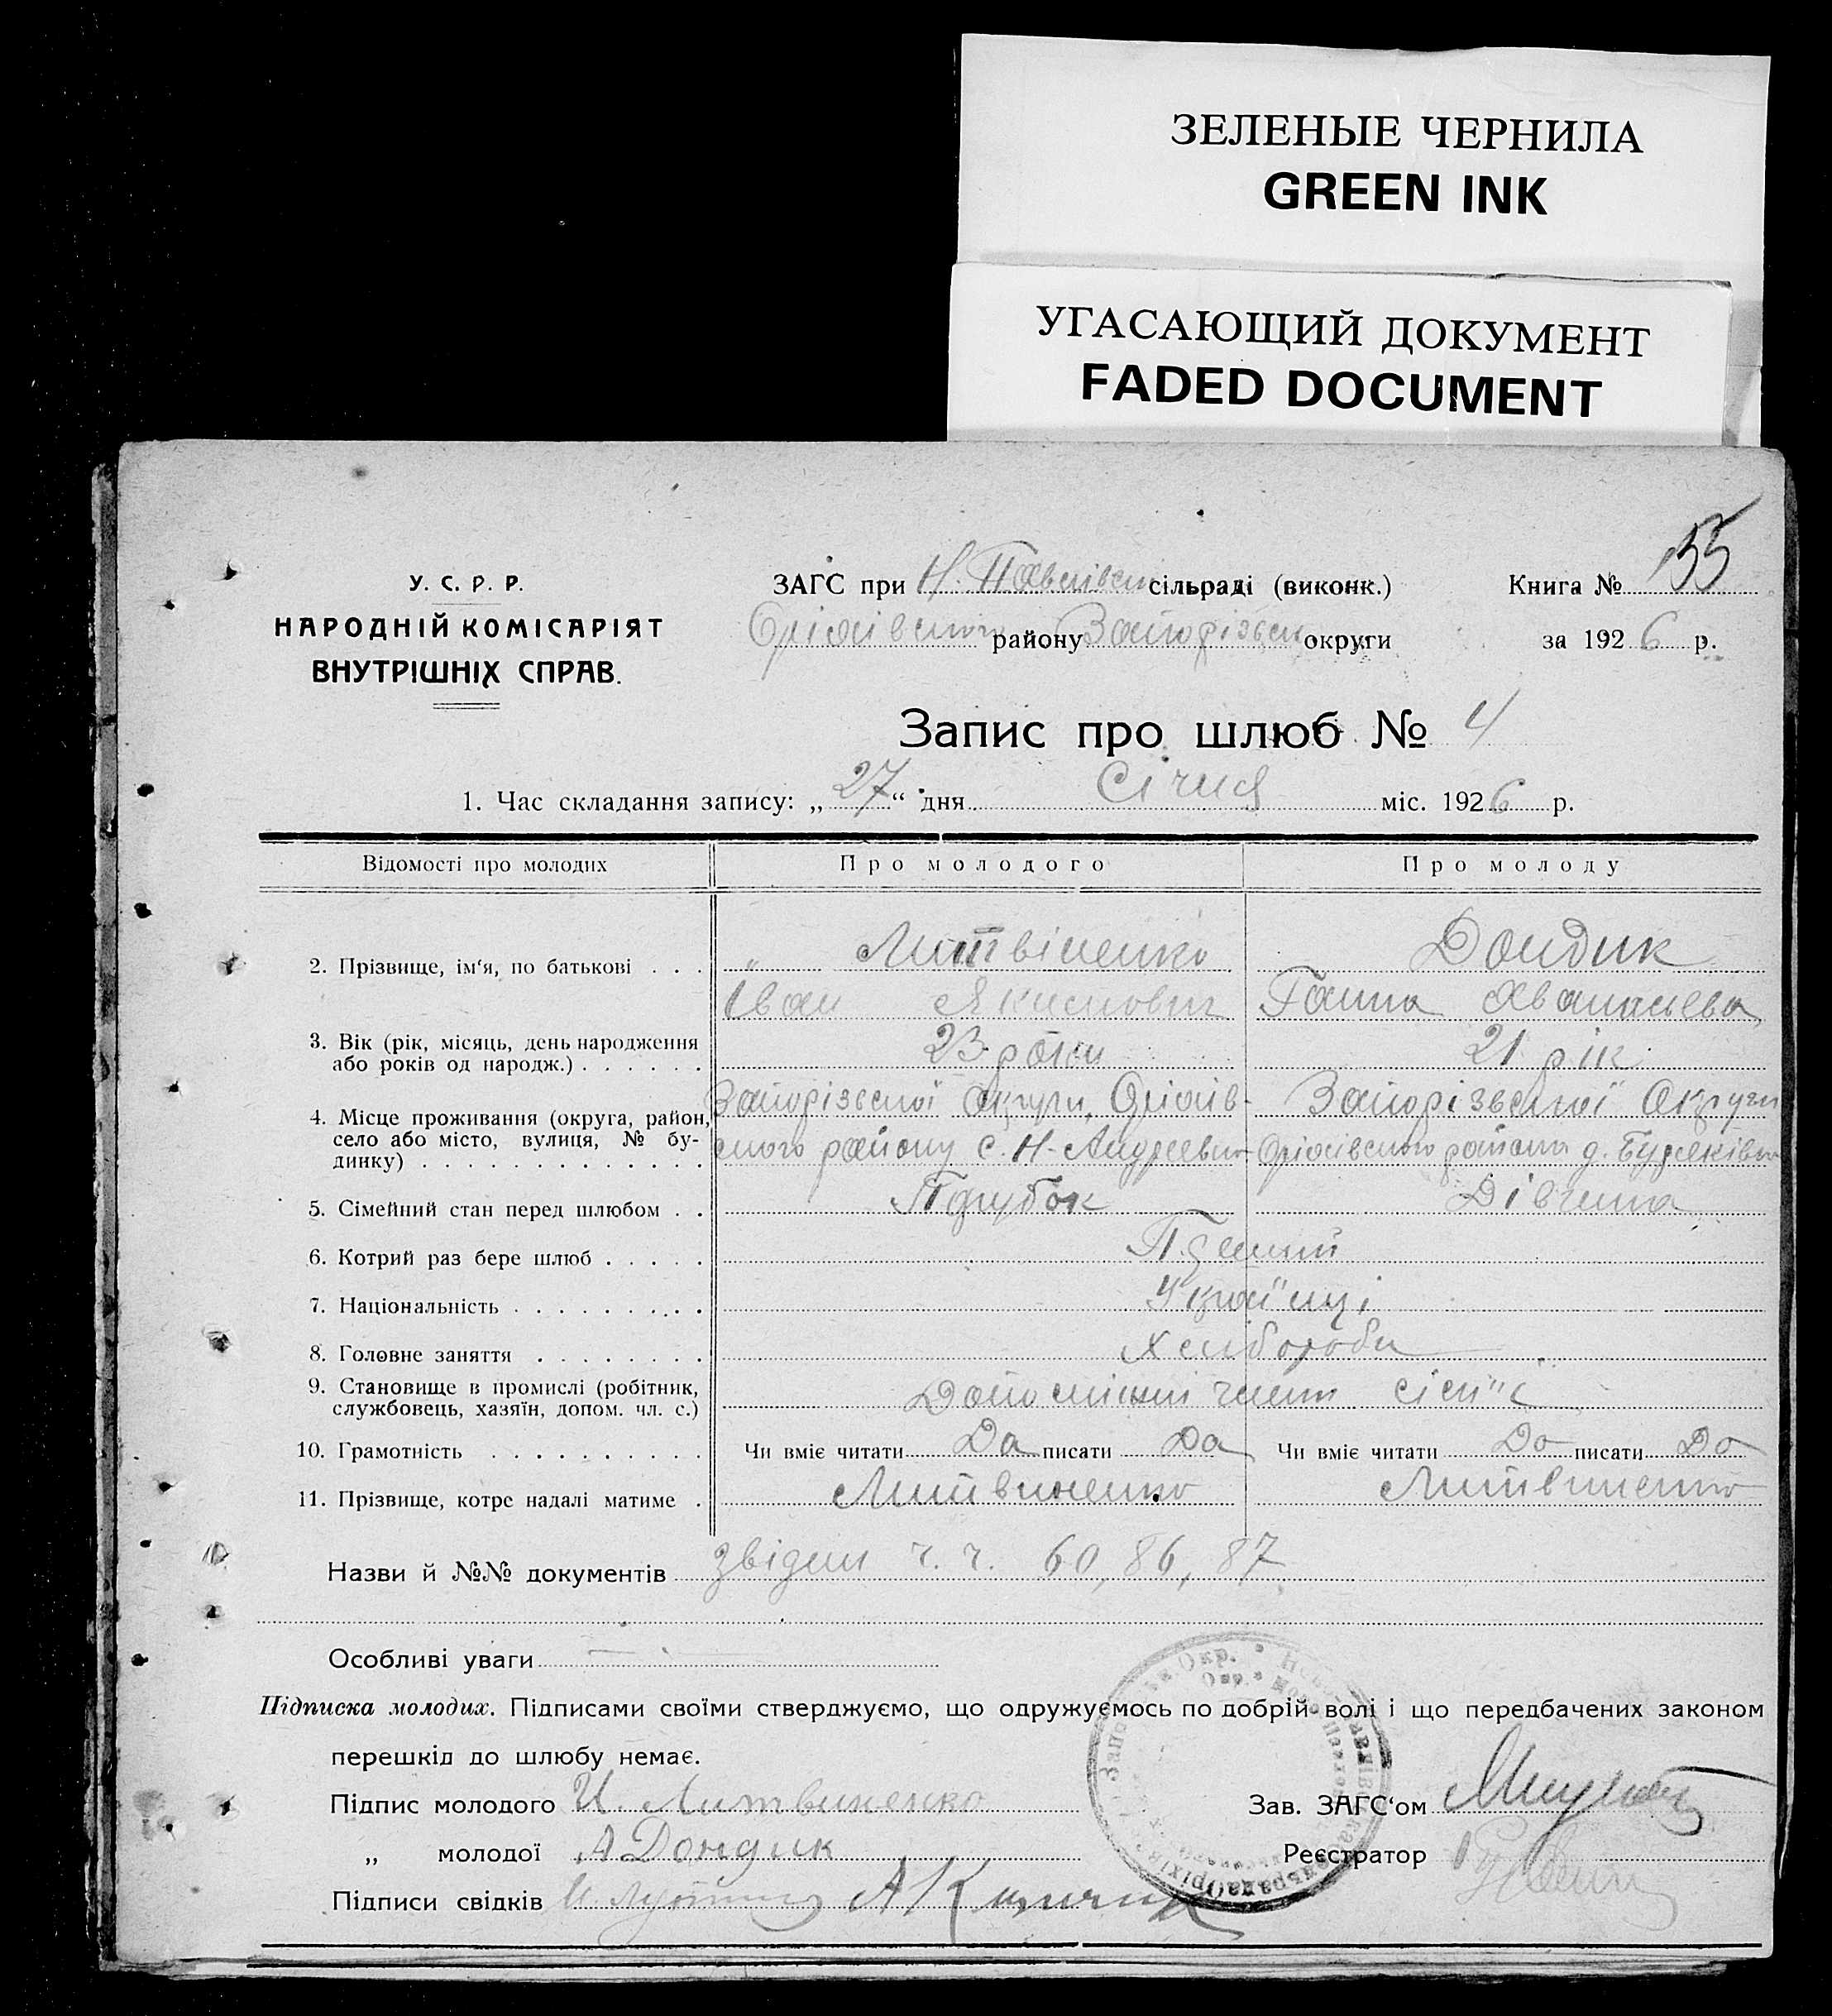 ЗЕЛЕНЫЕ ЧЕРНИЛА
GREEN INK
УГАСАЮЩИЙ ДОКУМЕНТ
FADED DOCUMENT
155
У. С. Р. Р.
НАРОДНІЙ КОМІСАРІЯТ
ВНУТРІШНІХ СПРАВ.
ЗАГС при Н. Павлівськ сільраді (виконк.)
Книга №
Оріхівського району Запорізськ округи
за 1926 р.
Запис про шлюб № 4
1. Час складання запису: „27“ дня Січня міс. 1926 р.
Відомості про молодих Про молодого Про молоду
2. Прізвище, ім‘я, по батькові . . . „ Литвіненко Дондик
Іван Якимович Ганна
3. Вік (рік, місяць, день народження
або років од народж.) . . . . . . 23 роки 21 рік
4. Місце проживання (округа, район,
село або місто, вулиця, № бу-
динку) . . . . . . . . . . . . .
Запорізської Округи, Оріхів-
ського району с. Н-Андреевка
Запорізської Округи
Оріхівського району д.
5. Сімейний стан перед шлюбом . . Парубок Дівчина
6. Котрий раз бере шлюб . . . . . Перший
7. Національність . . . . . . . . . Українці
8. Головне заняття . . . . . . . . Хлібороби
9. Становище в промислі (робітник,
службовець, хазяїн, допом. чл. с.) член сім'ї
10. Грамотність . . . . . . . . . . Чи вміє читати Да писати Да Чи вміє читати Да писати Да
11. Прізвище, котре надалі матиме . Литвиненко Литвиненко
Назви й №№ документів звідки ч. ч. 60, 86, 87
Особливі уваги
Підписка молодих. Підписами своїми стверджуємо, що одружуємось по добрій волі і що передбачених законом
перешкід до шлюбу немає.
Підпис молодого И. Литвиненко
Зав. ЗАГС‘ом
„ молодої А Дондик
Реєстратор
Підписи свідків